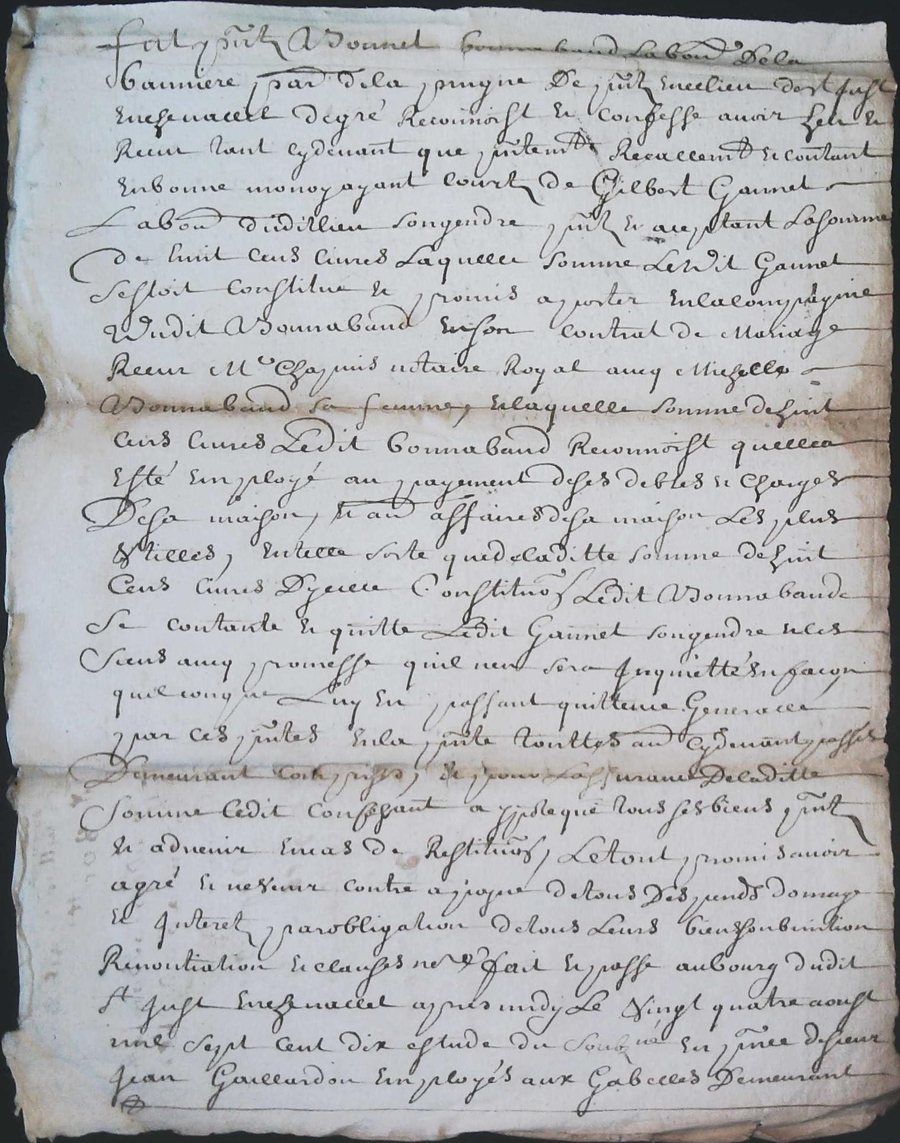 fut pnt Bonnet bonnabaud labour De la
banniere par dela De pnt en ce lieu de st Just
en chevallet de gré Reconnoist et confesse avoir heu et
Receu tant cydevant que pntemt Reallement et contant
en bonne monoy ayant court de Gilbert Gannet
Labour dudit lieu son gendre pnt et aceptant La somme
de huit cens livres Laquelle somme Ledit Gannet
s'estoit constitué et promis aporter en la compagnie
dudit Bonnabaud en son contrat de Mariage
Receu Me Chapuis notaire Royal avecq Michelle
Bonnabaud sa femme, et laquelle somme de huit
cens livres Ledit bonnabaud Reconnoist quelle a
esté employé au payement de ses debtes et charges
De sa maison, et aux affaires de sa maison Les plus
Utilles, en telle sorte que de laditte somme de huit
Cens livres D'ycelle Constituon Ledit Bonnabaud
Se contante et quitte Ledit Gannet son gendre et les
Siens avecq promesse quil nen sera Inquietté en facon
quelconque Luy en passant quittence Generalle
par ces pntes en la pnte touttes aues cydevant passés
Demeurant comprises, et pour Lassurance De laditte
Somme ledit confessant a ypoteque tous ses biens pnt
et advenir en cas de Restituon, Le tout promis avoir
agré et ne venir contre a peyne de tous Despends domage
et Interet par obligation de tous Leurs biens soubmition
Renontiation et clauses nere fait et passé au bourg dudit
St Just en chevallet apres midy Le Vingt quatre aoust
mil sept cent dix estude du en pnce de sieur
Jean Gaillardon Employés aux Gabelles Demeurant